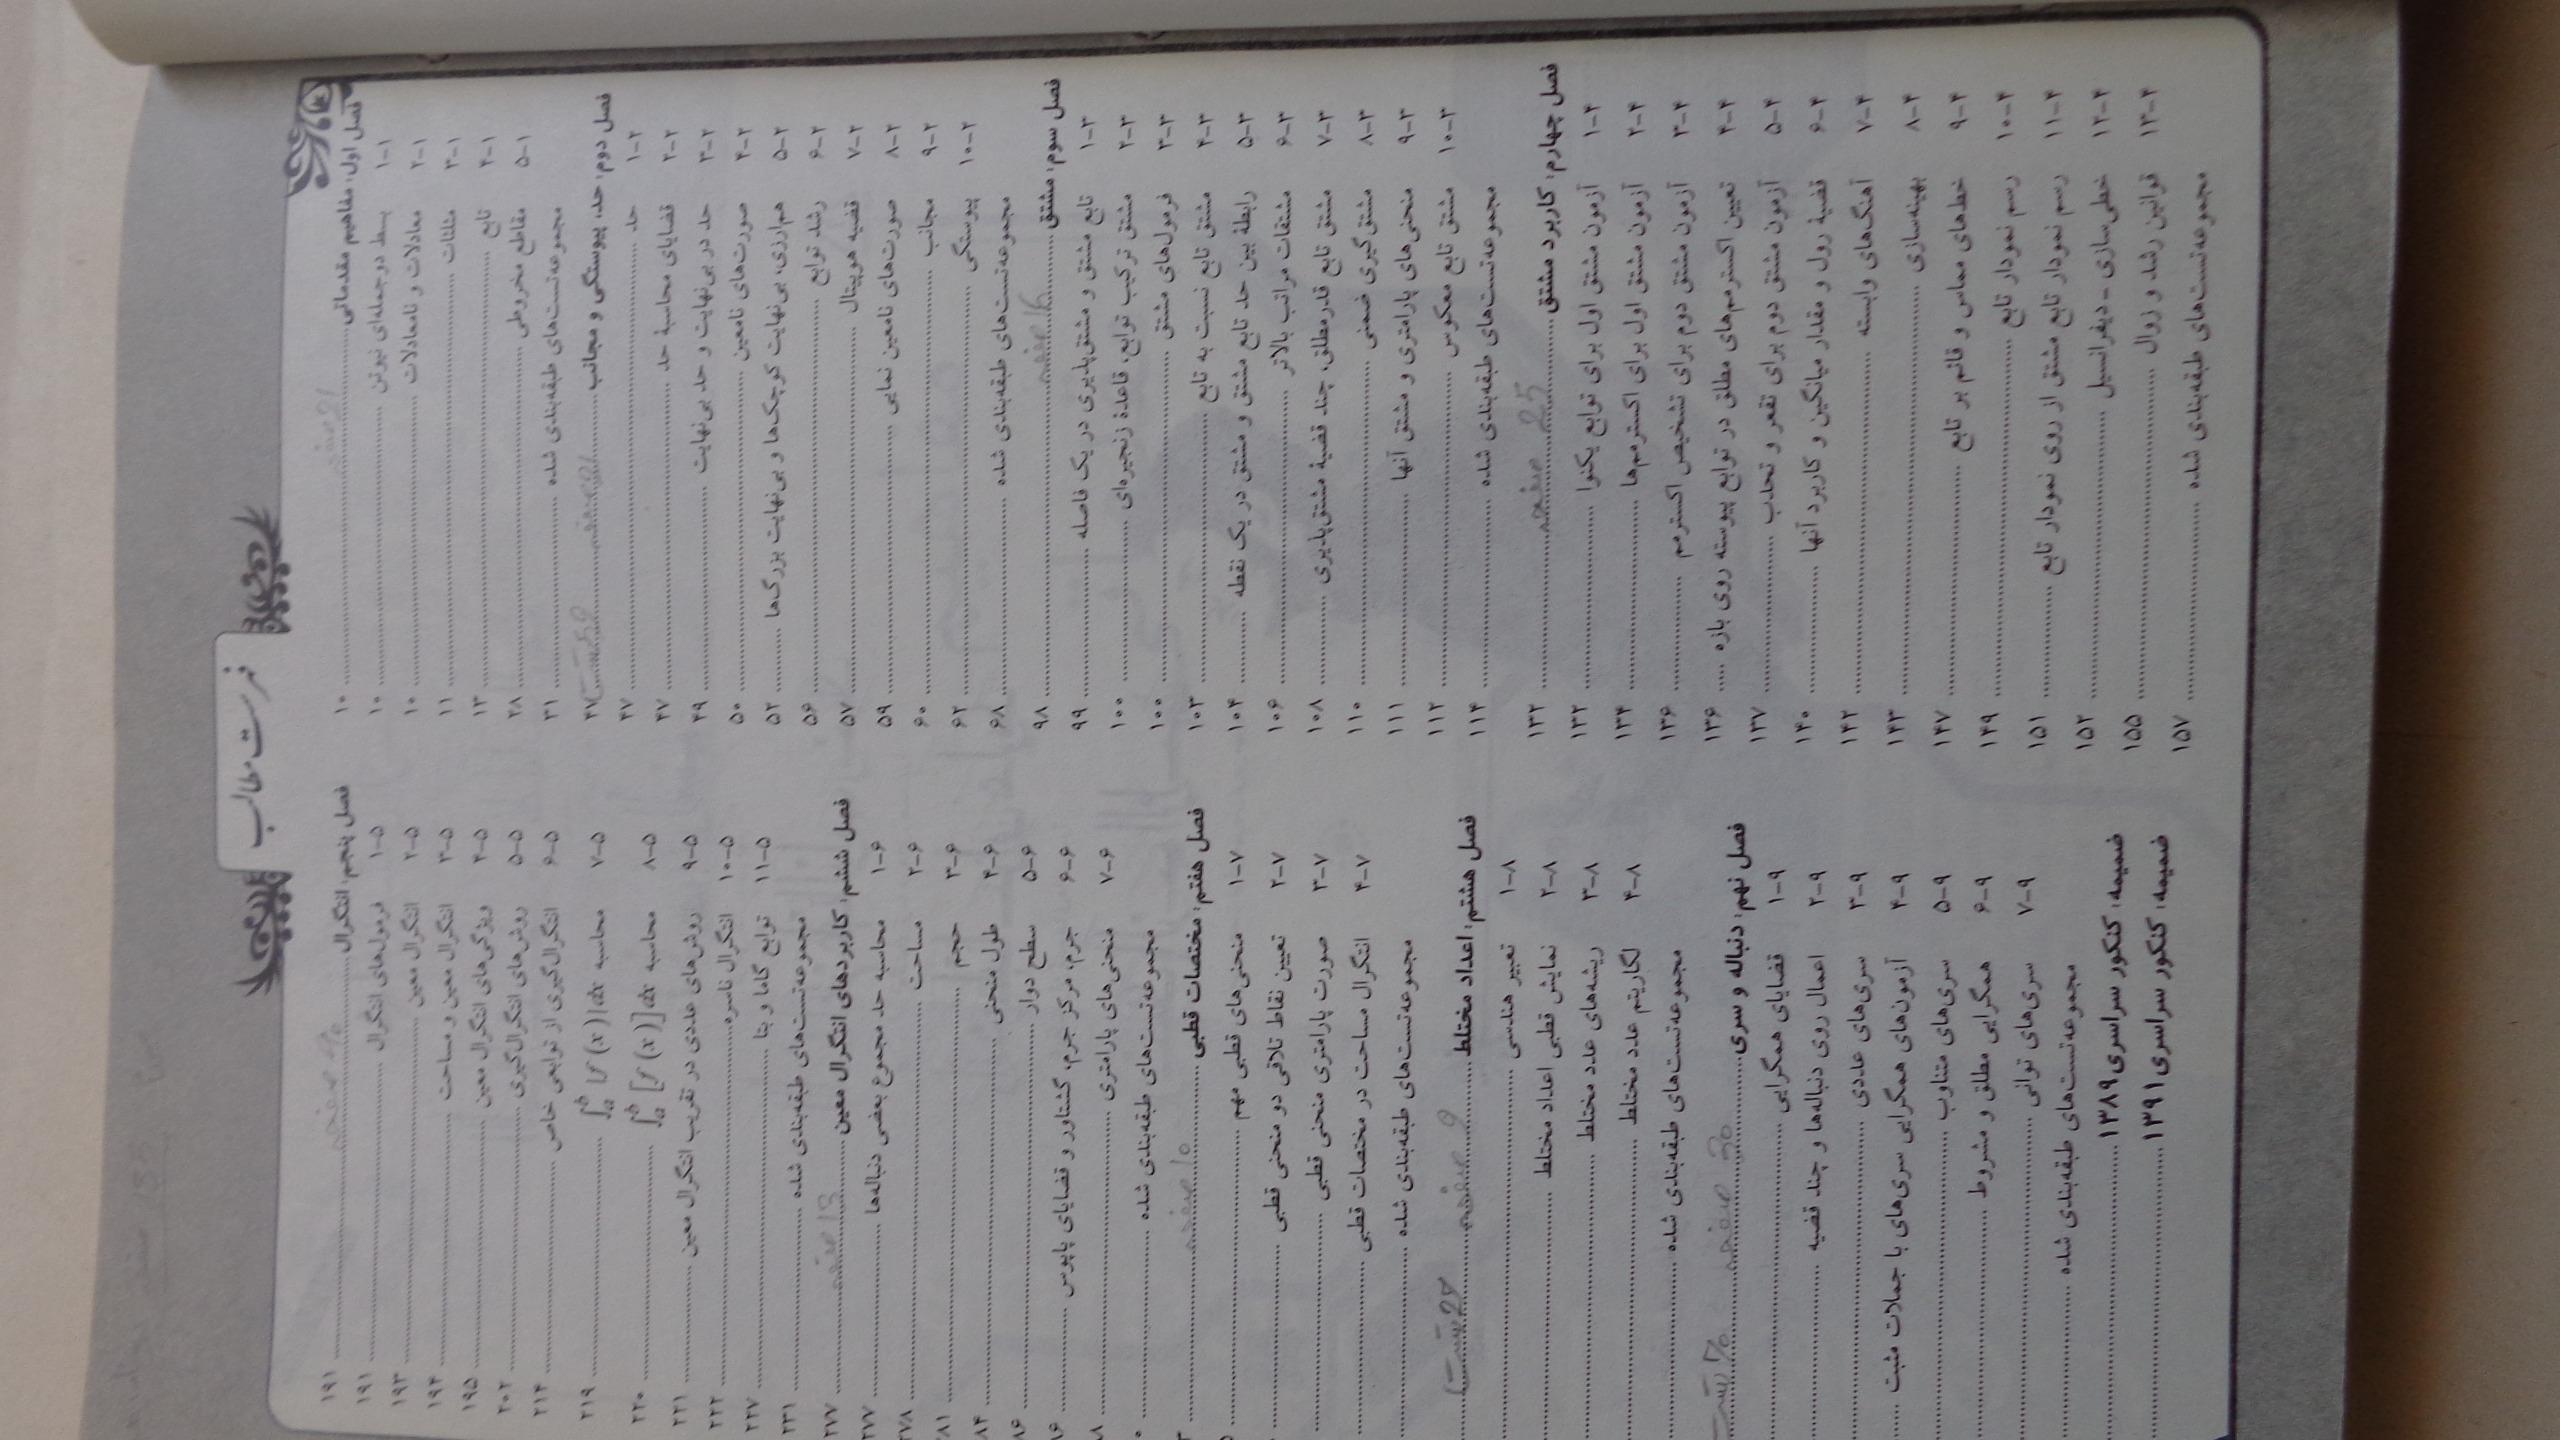 فهرست مطالب
فصل اول: مفاهیم مقدماتی ۱۰
۱-۱ بسط دوجمله‌ای نیوتن ۱۰
۲-۱ معادلات و نامعادلات ۱۰
۳-۱ مثلثات ۱۱
۴-۱ تابع ۱۳
۵-۱ مقاطع مخروطی ۲۸
مجموعه تست‌های طبقه‌بندی شده ۳۱
فصل دوم: حد، پیوستگی و مجانب ۴۷
۱-۲ حد ۴۷
۲-۲ قضایای محاسبهٔ حد ۴۷
۳-۲ حد در بی‌نهایت و حد بی‌نهایت ۴۹
۴-۲ صورت‌های نامعین ۵۰
۵-۲ هم‌ارزی، بی‌نهایت کوچک‌ها و بی‌نهایت بزرگ‌ها ۵۲
۶-۲ رشد توابع ۵۶
۷-۲ قضیه هوپیتال ۵۷
۸-۲ صورت‌های نامعین نمایی ۵۹
۹-۲ مجانب ۶۰
۱۰-۲ پیوستگی ۶۲
مجموعه تست‌های طبقه‌بندی شده ۶۸
فصل سوم: مشتق ۹۸
۱-۳ تابع مشتق و مشتق‌پذیری در یک فاصله ۹۹
۲-۳ مشتق ترکیب توابع، قاعدهٔ زنجیره‌ای ۱۰۰
۳-۳ فرمول‌های مشتق ۱۰۰
۴-۳ مشتق تابع نسبت به تابع ۱۰۳
۵-۳ رابطهٔ بین حد تابع مشتق و مشتق در یک نقطه ۱۰۴
۶-۳ مشتقات مراتب بالاتر ۱۰۶
۷-۳ مشتق تابع قدرمطلق، چند قضیهٔ مشتق‌پذیری ۱۰۸
۸-۳ مشتق‌گیری ضمنی ۱۱۰
۹-۳ منحنی‌های پارامتری و مشتق آنها ۱۱۱
۱۰-۳ مشتق تابع معکوس ۱۱۲
مجموعه تست‌های طبقه‌بندی شده ۱۱۴
فصل چهارم: کاربرد مشتق ۱۳۲
۱-۴ آزمون مشتق اول برای توابع یکنوا ۱۳۲
۲-۴ آزمون مشتق اول برای اکسترمم‌ها ۱۳۴
۳-۴ آزمون مشتق دوم برای تشخیص اکسترمم ۱۳۶
۴-۴ تعیین اکسترمم‌های مطلق در توابع پیوسته روی بازه ۱۳۶
۵-۴ آزمون مشتق دوم برای تقعر و تحدب ۱۳۷
۶-۴ قضیهٔ رول و مقدار میانگین و کاربرد آنها ۱۴۰
۷-۴ آهنگ‌های وابسته ۱۴۲
۸-۴ بهینه‌سازی ۱۴۳
۹-۴ خط‌های مماس و قائم بر تابع ۱۴۷
۱۰-۴ رسم نمودار تابع ۱۴۹
۱۱-۴ رسم نمودار تابع مشتق از روی نمودار تابع ۱۵۱
۱۲-۴ خطی‌سازی - دیفرانسیل ۱۵۲
۱۳-۴ قوانین رشد و زوال ۱۵۵
مجموعه تست‌های طبقه‌بندی شده ۱۵۷
فصل پنجم: انتگرال ۱۹۱
۱-۵ فرمول‌های انتگرال ۱۹۱
۲-۵ انتگرال معین ۱۹۳
۳-۵ انتگرال معین و مساحت ۱۹۴
۴-۵ ویژگی‌های انتگرال معین ۱۹۵
۵-۵ روش‌های انتگرال‌گیری ۲۰۲
۶-۵ انتگرال‌گیری از توابعی خاص ۲۱۴
۷-۵ محاسبه ∫ₐᵇ |f(x)| dx ۲۱۹
۸-۵ محاسبه ∫ₐᵇ [f(x)] dx ۲۲۰
۹-۵ روش‌های عددی در تقریب انتگرال معین ۲۲۱
۱۰-۵ انتگرال ناسره ۲۲۲
۱۱-۵ توابع گاما و بتا ۲۲۷
مجموعه تست‌های طبقه‌بندی شده ۲۳۱
فصل ششم: کاربردهای انتگرال معین ۲۷۷
۱-۶ محاسبه حد مجموع بعضی دنباله‌ها ۲۷۷
۲-۶ مساحت ۲۷۸
۳-۶ حجم ۸۱
۴-۶ طول منحنی ۸۴
۵-۶ سطح دوار ۸۶
۶-۶ جرم، مرکز جرم، گشتاور و قضایای پاپوس
۷-۶ منحنی‌های پارامتری
مجموعه تست‌های طبقه‌بندی شده
فصل هفتم: مختصات قطبی
۱-۷ منحنی‌های قطبی مهم
۲-۷ تعیین نقاط تلاقی دو منحنی قطبی
۳-۷ صورت پارامتری منحنی قطبی
۴-۷ انتگرال مساحت در مختصات قطبی
مجموعه تست‌های طبقه‌بندی شده
فصل هشتم: اعداد مختلط
۱-۸ تعبیر هندسی
۲-۸ نمایش قطبی اعداد مختلط
۳-۸ ریشه‌های عدد مختلط
۴-۸ لگاریتم عدد مختلط
مجموعه تست‌های طبقه‌بندی شده
فصل نهم: دنباله و سری
۱-۹ قضایای همگرایی
۲-۹ اعمال روی دنباله‌ها و چند قضیه
۳-۹ سری‌های عددی
۴-۹ آزمون‌های همگرایی سری‌های با جملات مثبت
۵-۹ سری‌های متناوب
۶-۹ همگرایی مطلق و مشروط
۷-۹ سری‌های توانی
مجموعه تست‌های طبقه‌بندی شده
ضمیمه: کنکور سراسری ۱۳۸۹
ضمیمه: کنکور سراسری ۱۳۹۱